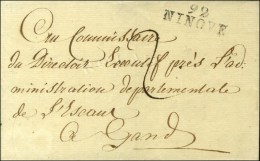 92
NINOVE
Au Commissaire
du Directoire Executif près l'ad
ministration departementale
de l'Escaut
a Gand